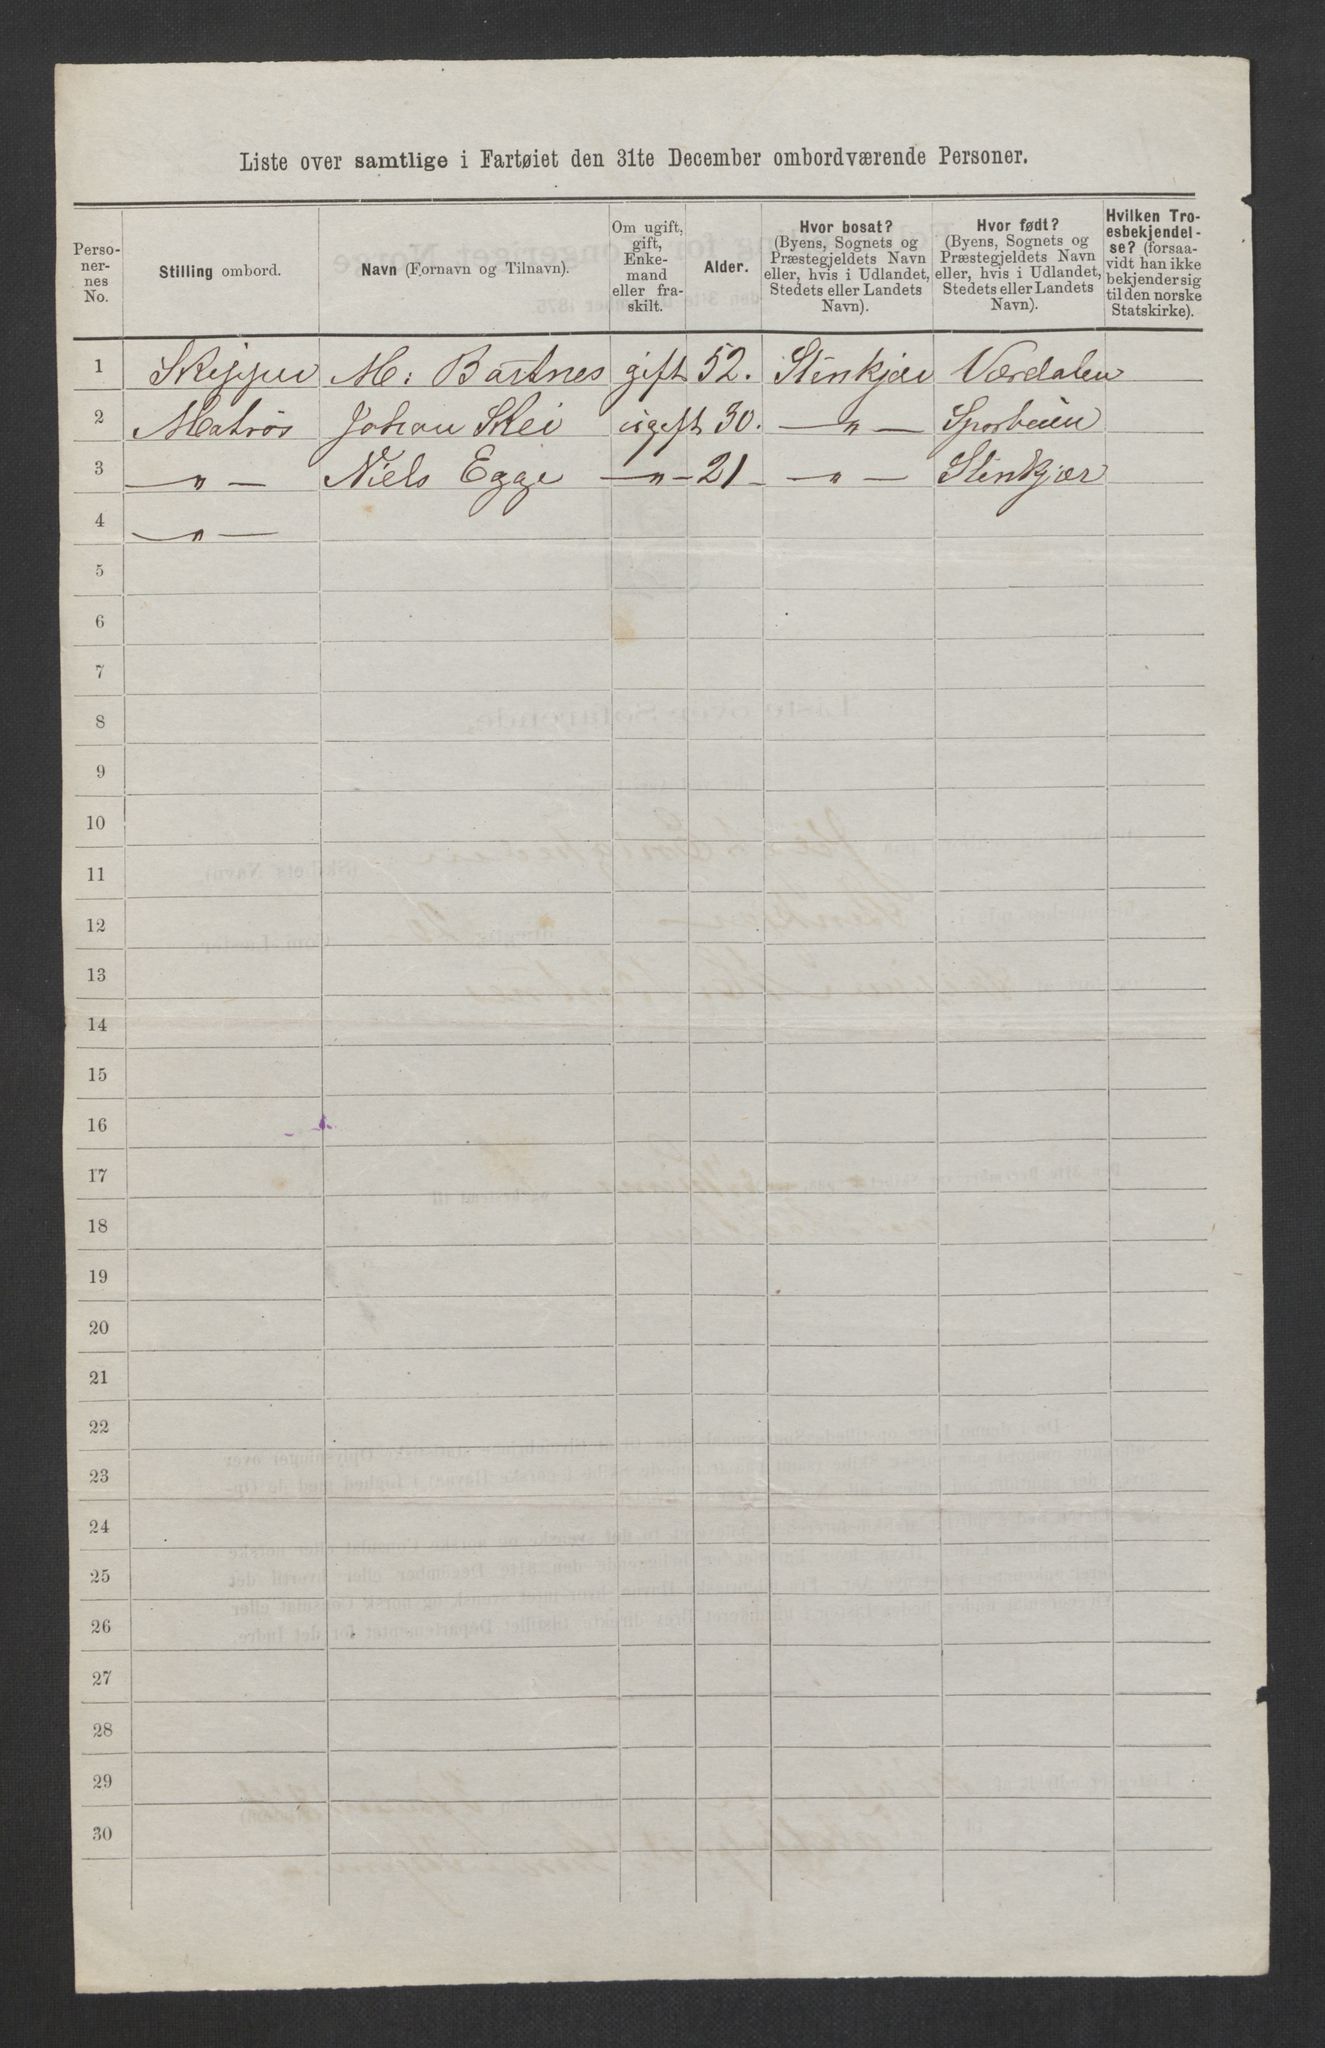 Liste over samtlige i Fartøiet den 31te December ombordværende Personer.
Perso-
ner-
nes
No.
Stilling ombord.
Navn (Fornavn og Tilnavn).
Om ugift,
gift,
Enke-
mand
eller fra-
skilt.
Alder.
Hvor bosat?
(Byens, Sognets og
Præstegjeldets Navn
eller, hvis i Udlandet,
Stedets eller Landets
Navn).
Hvor født?
(Byens, Sognets og
Præstegjeldets Navn
eller, hvis i Udlandet,
Stedets eller Landets
Navn).
Hvilken Tro-
esbekjendel-
se? (forsaa-
vidt han ikke
bekjender sig
til den norske
Statskirke).
1 Skipper M: Bartnes gift 52. Stenkjær Værdalen
2 Matros Johan Skei ugift 30. — „ — Sparbuen
3 — „ — Niels Egge — „ — 21 — — „ — Stenkjær
4 — „ —
5
6
7
8
9
10
11
12
13
14
15
16
17
18
19
20
21
22
23
24
25
26
27
28
29
30